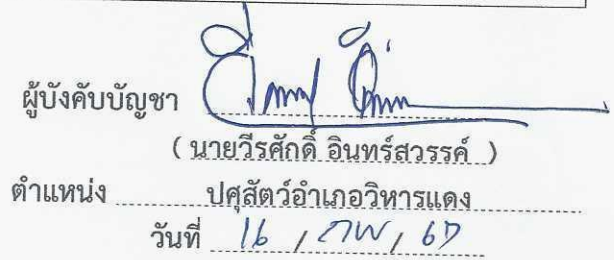 ผู้บังคับบัญชา
( นายวีรศักดิ์ อินทร์สวรรค์ )
ตำแหน่ง ปศุสัตว์อำเภอวิหารแดง
วันที่ 16 / กพ / 67